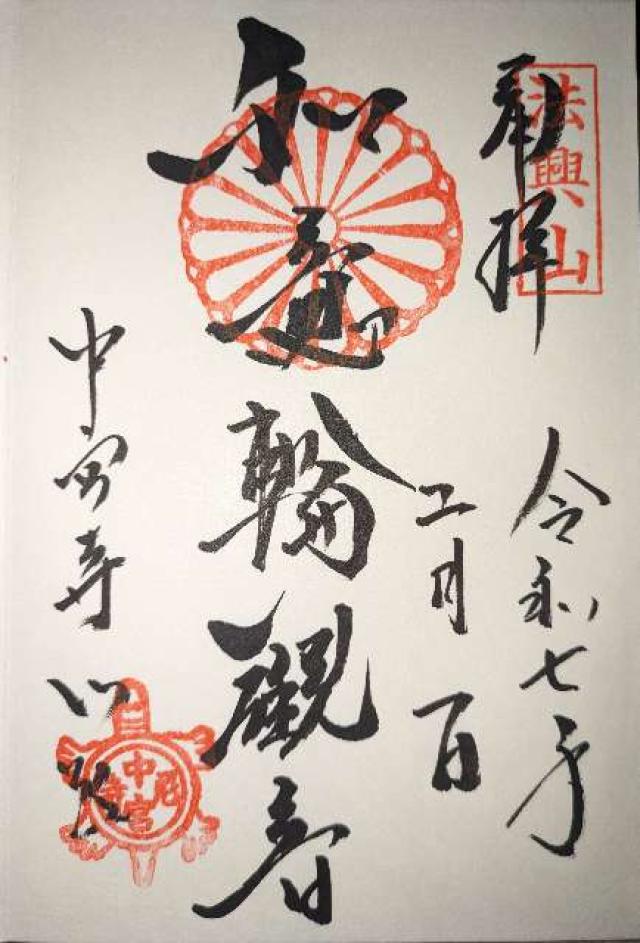 法興山
奉拝
令和七年
二月一日
如意輪觀音
中宮寺門跡
中宮尼寺